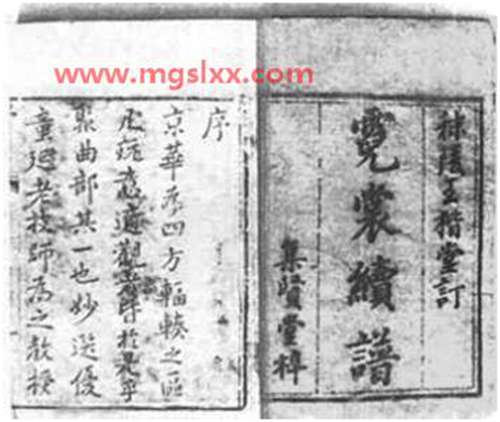 www.mgslxx.com
秣陵王楷堂訂
霓裳續譜
集賢堂梓
序
京華為四方輻輳之區
凡玩意適觀者於是乎
聚曲部其一也妙選優
童延老技師為之教授